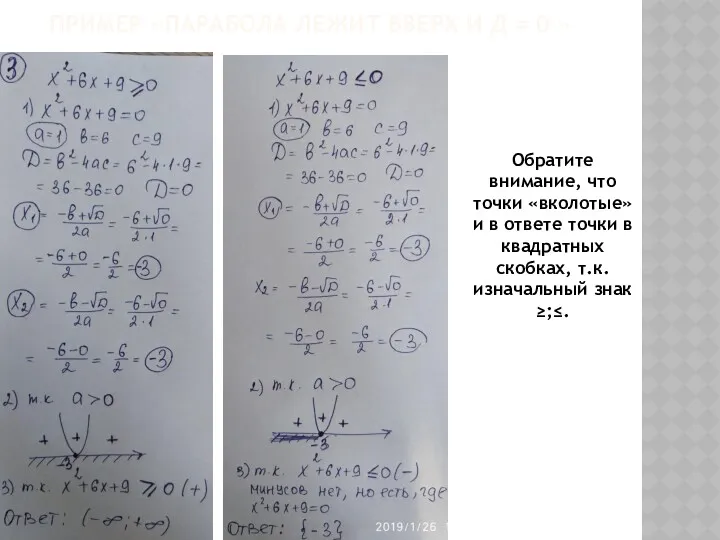 ПРИМЕР - ПАРАБОЛА ЛЕЖИТ ВВЕРХ И Д = 0 -
3
x²+6x+9⩾0
1) x²+6x+9=0
a=1 в=6 c=9
D=в²-4ac=6²-4·1·9=
=36-36=0 D=0
x₁= (-в+√D)/2a = (-6+√0)/2·1 =
= (-6+0)/2 = -6/2 = -3
x₂ = (-в-√D)/2a = (-6-√0)/2·1 =
= (-6-0)/2 = -6/2 = -3
2) т.к a>0
+ + +
-3
3) т.к x²+6x+9⩾0 (+)
Ответ: (-∞;+∞)
x²+6x+9≤0
1) x²+6x+9=0
a=1 в=6 c=9
D=в²-4ac=6²-4·1·9=
=36-36=0 D=0
x₁= (-в+√D)/2a = (-6+√0)/2·1 =
= (-6+0)/2 = -6/2 = -3
x₂= (-в-√D)/2a = (-6-√0)/2·1 =
= (-6-0)/2 = -6/2 = -3
2) т.к. a>0
+ + +
-3
3) т.к. x²+6x+9≤0 (-)
минусов нет, но есть, где
x²+6x+9=0
Ответ: {-3}
2019/1/26 1
Обратите
внимание, что
точки «вколотые»
и в ответе точки в
квадратных
скобках, т.к.
изначальный знак
≥;≤.